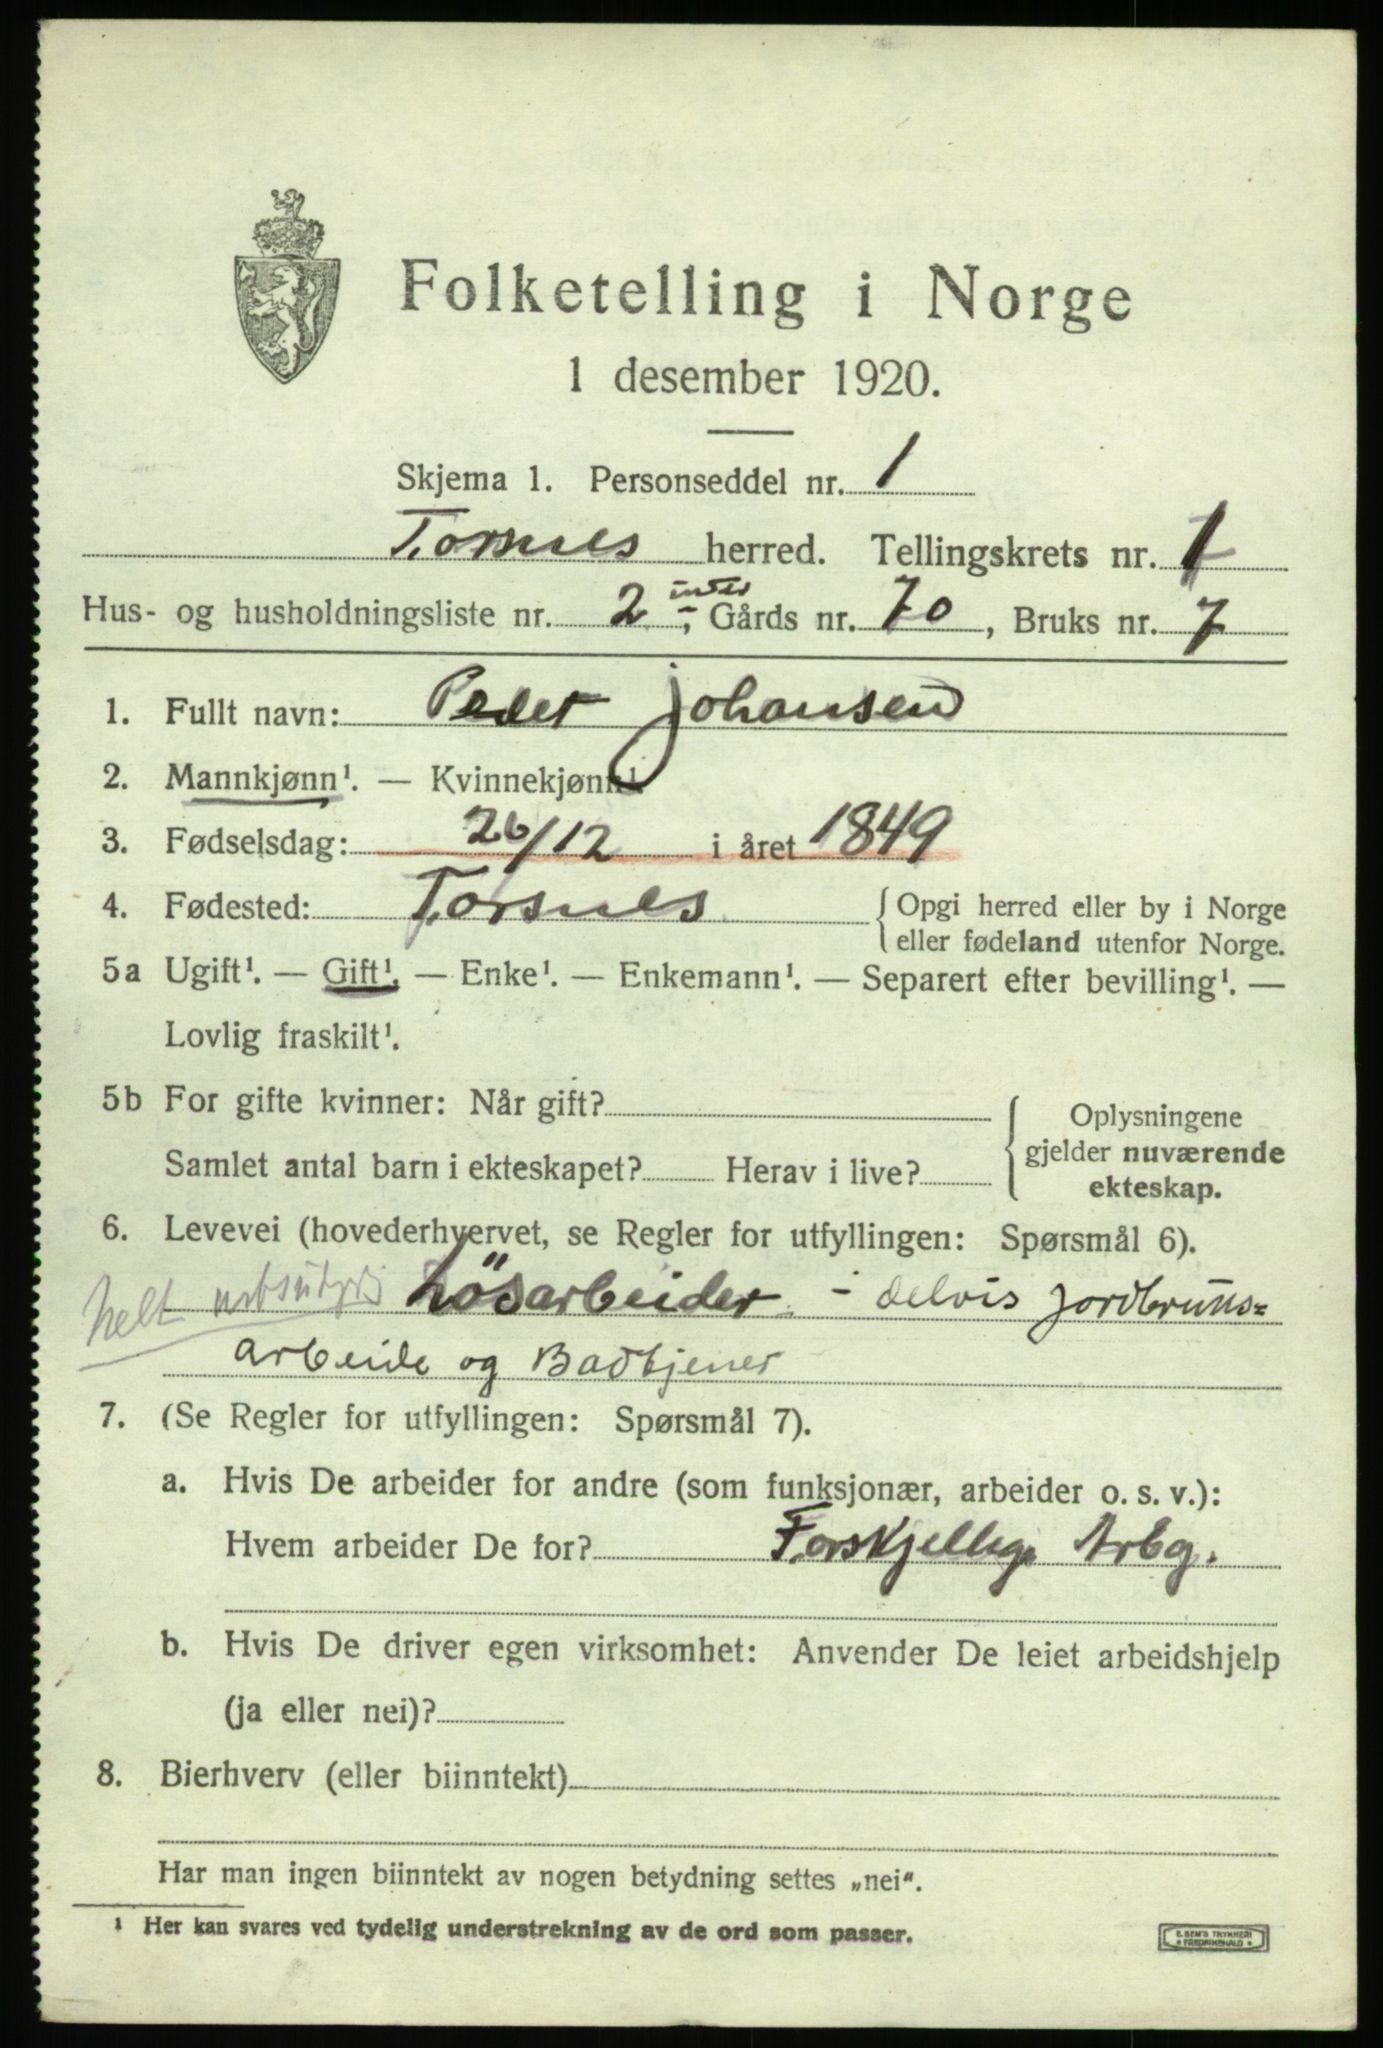 Folketelling i Norge
1 desember 1920.
Skjema 1. Personseddel nr. 1
Torsnes herred. Tellingskrets nr. 1
Hus- og husholdningsliste nr. 2 under; Gårds nr. 70, Bruks nr. 7
1. Fullt navn: Peder Johansen
2. Mannkjønn¹. — Kvinnekjønn¹.
3. Fødselsdag: 26/12 i året 1849
4. Fødested: Torsnes {Opgi herred eller by i Norge
eller fødeland utenfor Norge.
5a Ugift¹. — Gift¹. — Enke¹. — Enkemann¹. — Separert efter bevilling¹. —
Lovlig fraskilt¹.
5b For gifte kvinner: Når gift?
Samlet antal barn i ekteskapet? Herav i live?
{Oplysningene
gjelder nuværende
ekteskap.
6. Levevei (hovederhvervet, se Regler for utfyllingen: Spørsmål 6).
helt Løsarbeider - delvis jordbruks=
arbeide og Badtjener
7. (Se Regler for utfyllingen: Spørsmål 7).
a. Hvis De arbeider for andre (som funksjonær, arbeider o. s. v.):
Hvem arbeider De for? Forskjellige Arbg.
b. Hvis De driver egen virksomhet: Anvender De leiet arbeidshjelp
(ja eller nei)?
8. Bierhverv (eller biinntekt)
Har man ingen biinntekt av nogen betydning settes „nei“.
¹ Her kan svares ved tydelig understrekning av de ord som passer.
E. SEM'S TRYKKERI
* FREDRIKSHALD *